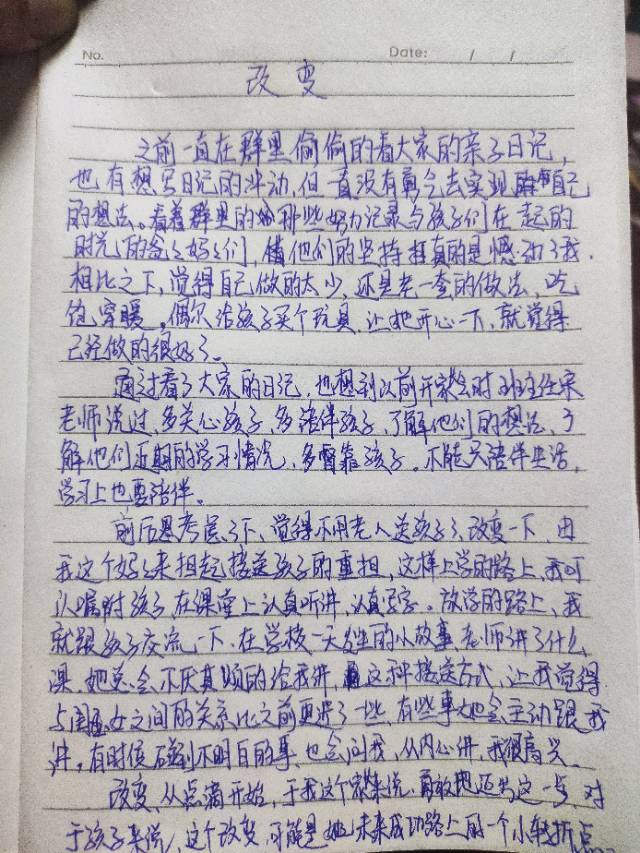 No.
Date: / /
改变
之前一直在群里偷偷的看大家的亲子日记,
也有想写日记的冲动,但一直没有勇气去实现自己
的想法。看着群里的那些努力记录与孩子们在一起的
时光的爸爸妈妈们,他们的坚持 真的是感动了我.
相比之下,觉得自己做的太少,还是老一套的做法,吃
饱穿暖。偶尔给孩子买个玩具,让她开心一下,就觉得
已经做的很好了。
通过看了大家的日记,也想到以前开家长会时班主任宋
老师说过,多关心孩子,多陪伴孩子,了解他们的想法,了
解他们近期的学习情况,多督靠孩子。不能只陪伴生活,
学习上也要陪伴。
前后思考 了下,觉得不用老人送孩子了,改变一下,由
我这个妈妈来担起接送孩子的重担,这样上学的路上,我可
以嘱咐孩子,在课堂上认真听讲,认真写字。放学的路上,我
就跟孩子交流一下,在学校一天发生的小故事,老师讲了什么
课,她总会不厌其烦的给我讲,这种接送方式,让我觉得
与闺女之间的关系比之前更进了一些,有些事她会主动跟我
讲,有时候碰到不明白的事,也会问我,从内心讲,我很高兴。
改变,从点滴开始,于我这个家长来说,勇敢地迈出这一步,对
于孩子来说,这个改变,可能是她未来成功路上的一个小转折点